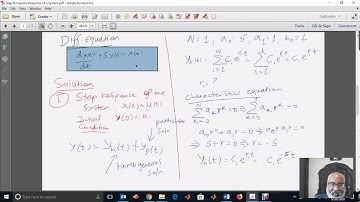 Step & Impulse Response of a System.pdf - Adobe Acrobat Pro
File Edit View Window Help
Customize
Diff Equation
dy(t)/dt + 5y(t) = x(t)
Solution
① Step response of the
System x(t) = u(t)
Initial Condition y(0) = 0
particular soln
y(t) = yh(t) + yp(t)
homogeneous soln
N=1, a0=5, a1=1, b0=1
yh(t) = Σ Ci e^rit = Σ Ci e^rit = C1 e^r1t
r1 ?
characteristics equation
Σ ak r^k = 0 ⇒ Σ ak r^k = 0
a0 r^0 + a1 r^1 = 0 ⇒ a0 + a1 r = 0
⇒ 5 + r = 0 ⇒ r = -5
yh(t) = C1 e^r1t C1 e^-5t